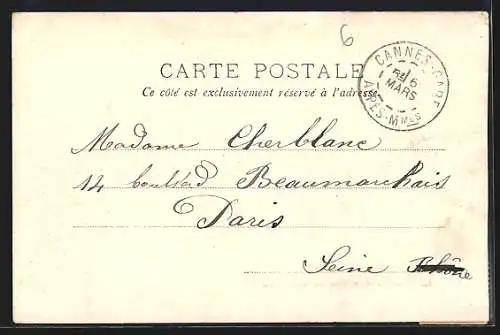 6
CARTE POSTALE
Ce côté est exclusivement réservé à l'adresse
CANNES-GARE
6
MARS
ALPES-Mmes
Madame Cherblanc
14 boulevard Beaumarchais
Paris
Seine Rhône